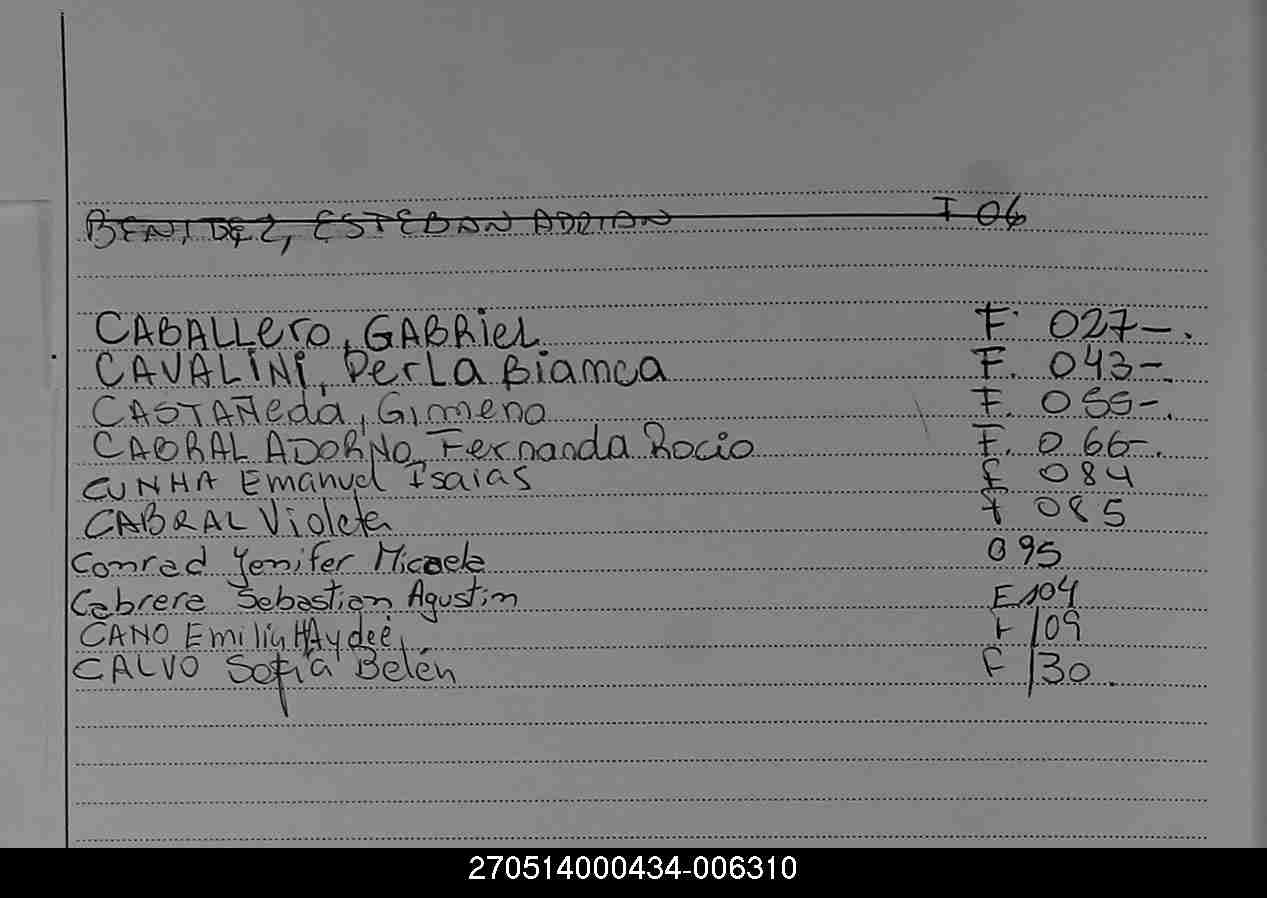 BENITEZ, ESTEBAN ADRIAN F 06
CABALLero, GABRieL F. 027-.
CAVALINi, PerLa Bianca F. 043-.
CASTAÑeda, Gimena F. 055-.
CABRAL ADORNO, Fernanda Rocio F. 066-.
CUNHA Emanuel Isaias F 084
CABRAL Violeta F 085
Conrad Yenifer Micaela 095
Cabrera Sebastian Agustin F 104
CANO Emilia HAydeé, F 109
CALVO Sofía Belén F 130.
270514000434-006310